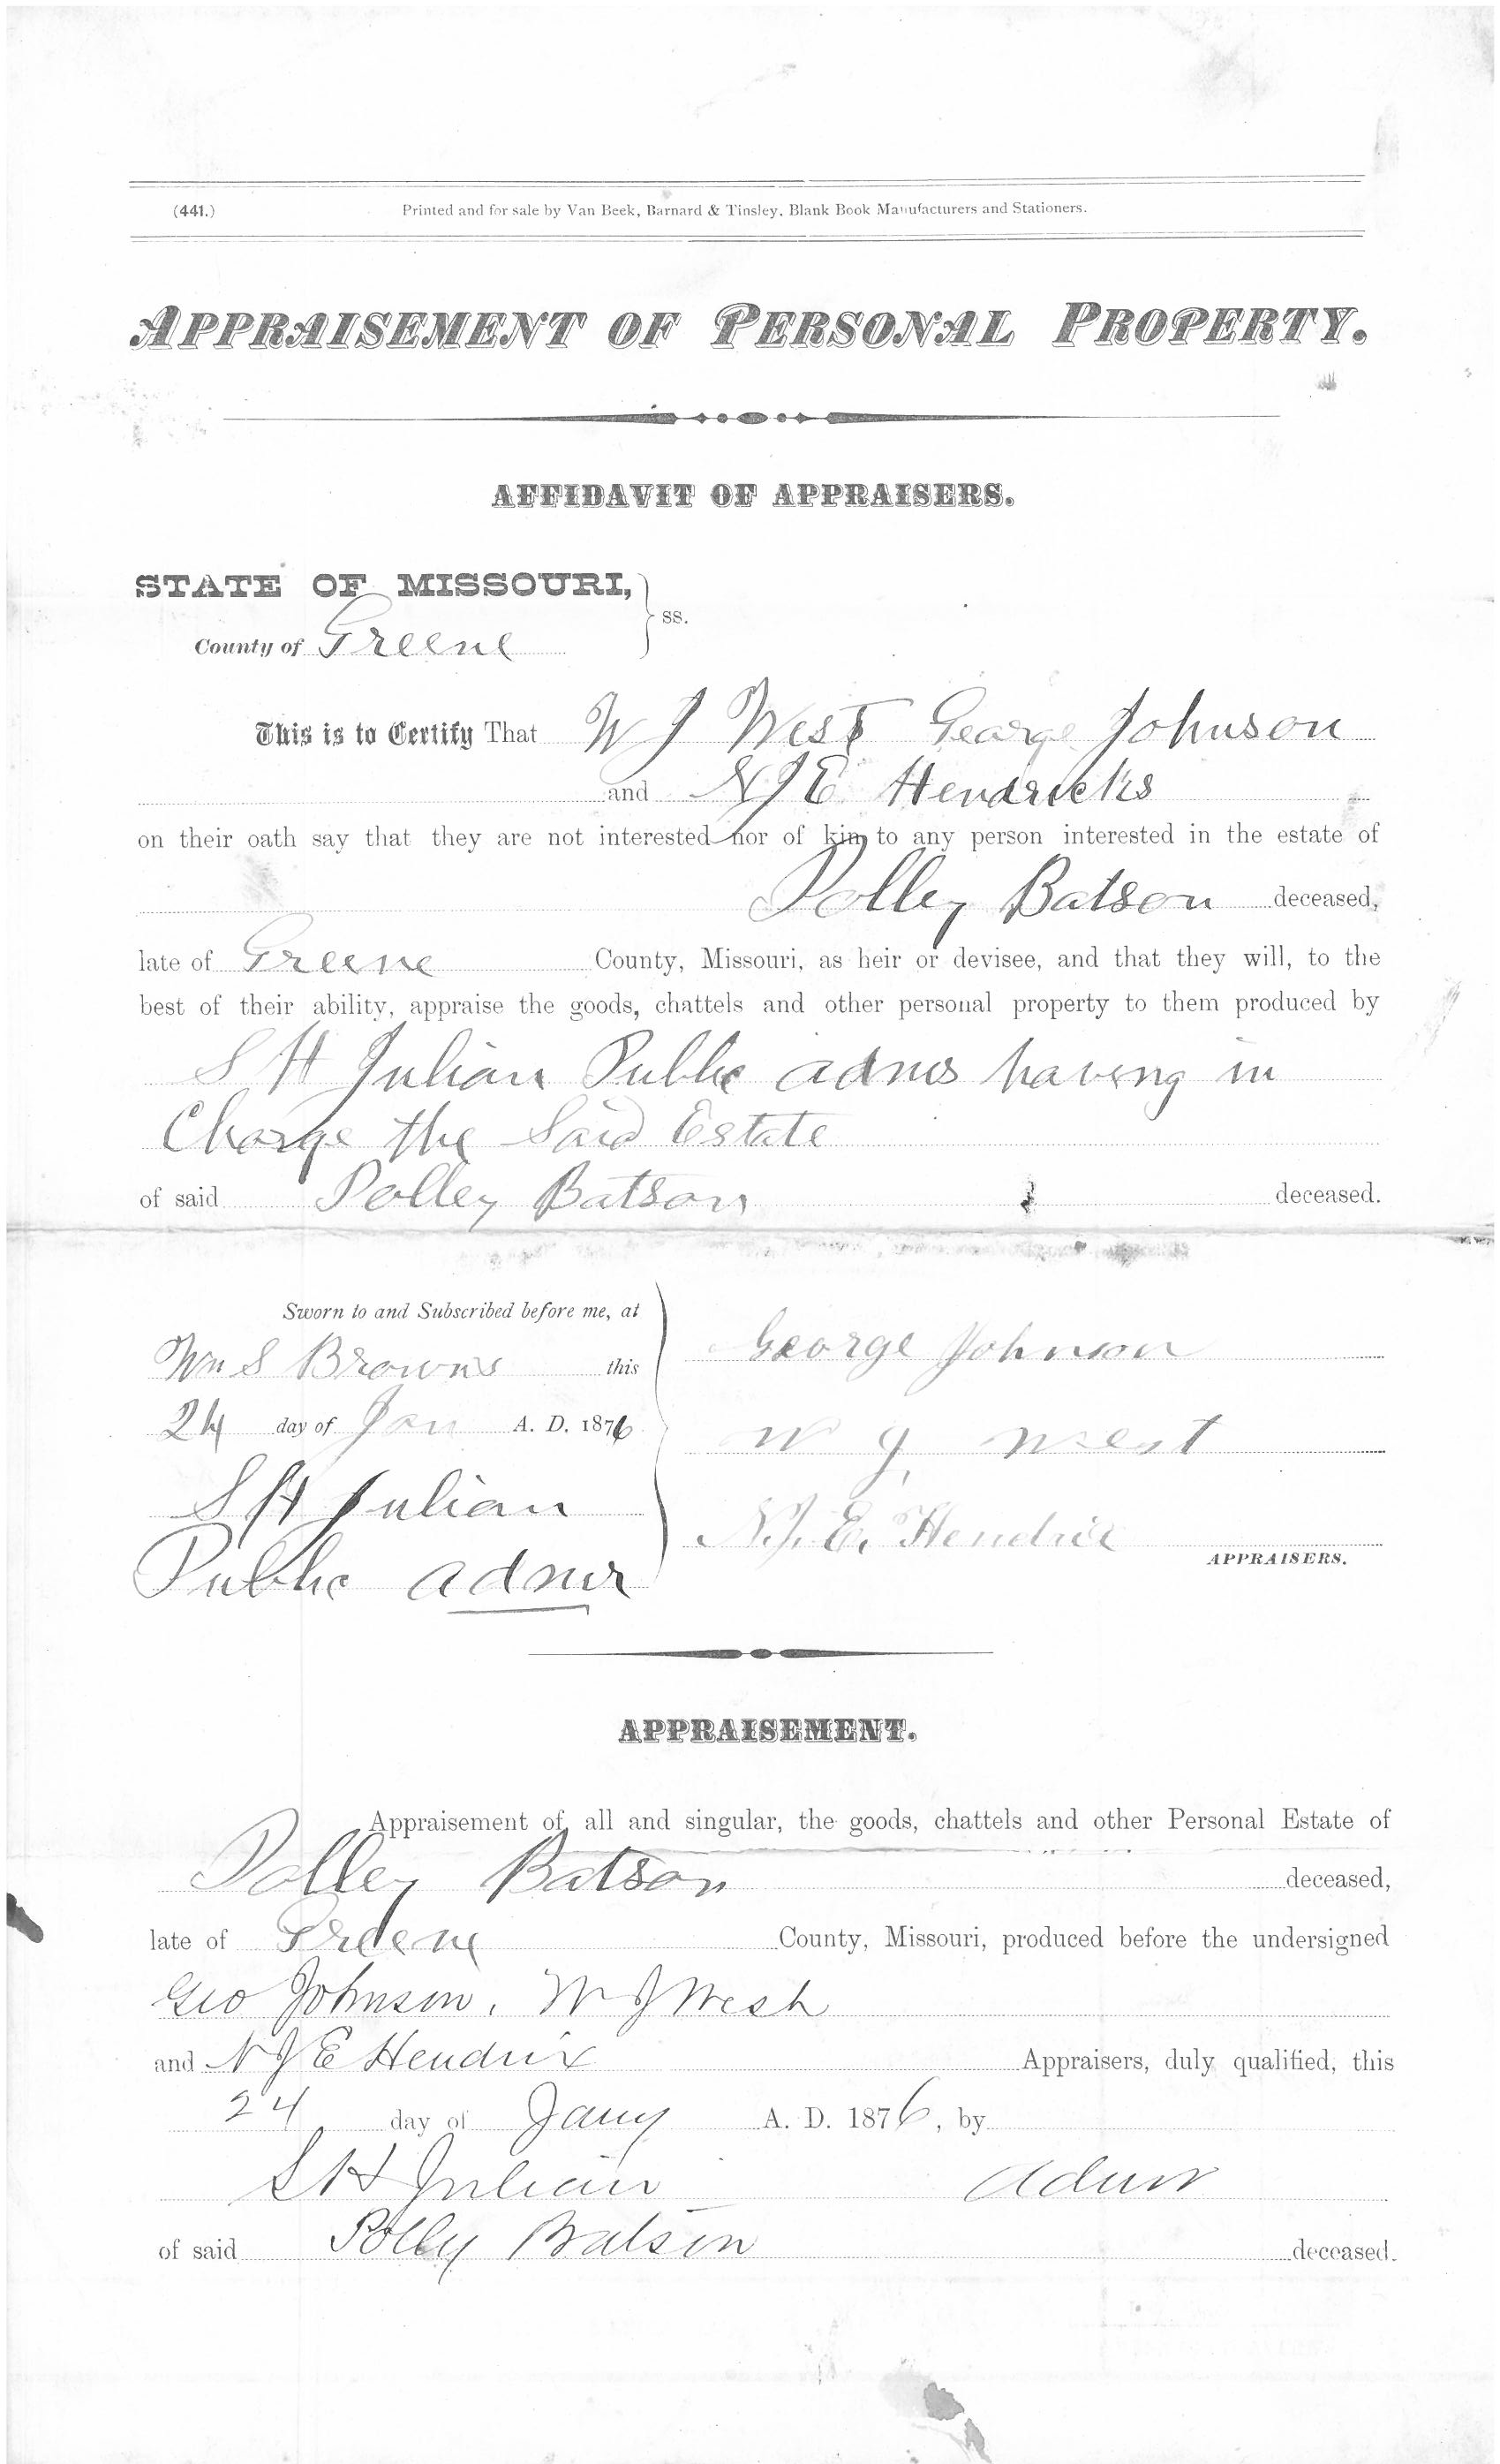 (441.) Printed and for sale by Van Beek, Barnard & Tinsley, Blank Book Manufacturers and Stationers.
APPRAISEMENT OF PERSONAL PROPERTY.
AFFIDAVIT OF APPRAISERS.
STATE OF MISSOURI,
County of Greene } ss.
This is to Certify That W J West George Johnson
and N J E Hendricks
on their oath say that they are not interested nor of kin to any person interested in the estate of
Polley Batson deceased,
late of Greene County, Missouri, as heir or devisee, and that they will, to the
best of their ability, appraise the goods, chattels and other personal property to them produced by
S H Julian Public admr having in
Charge the Said Estate
of said Polley Batson deceased.
Sworn to and Subscribed before me, at
Wm S Browns this
24 day of Jan A. D. 1876
S H Julian
Public admr
George Johnson
W J, West
N. J. E. Hendrix
APPRAISERS.
APPRAISEMENT.
Appraisement of all and singular, the goods, chattels and other Personal Estate of
Polley Batson deceased,
late of Greene County, Missouri, produced before the undersigned
Geo Johnson, W J West
and N J E Hendrix Appraisers, duly qualified, this
24 day of Jany A. D. 1876, by
S H Julian Admr
of said Polly Batson deceased.